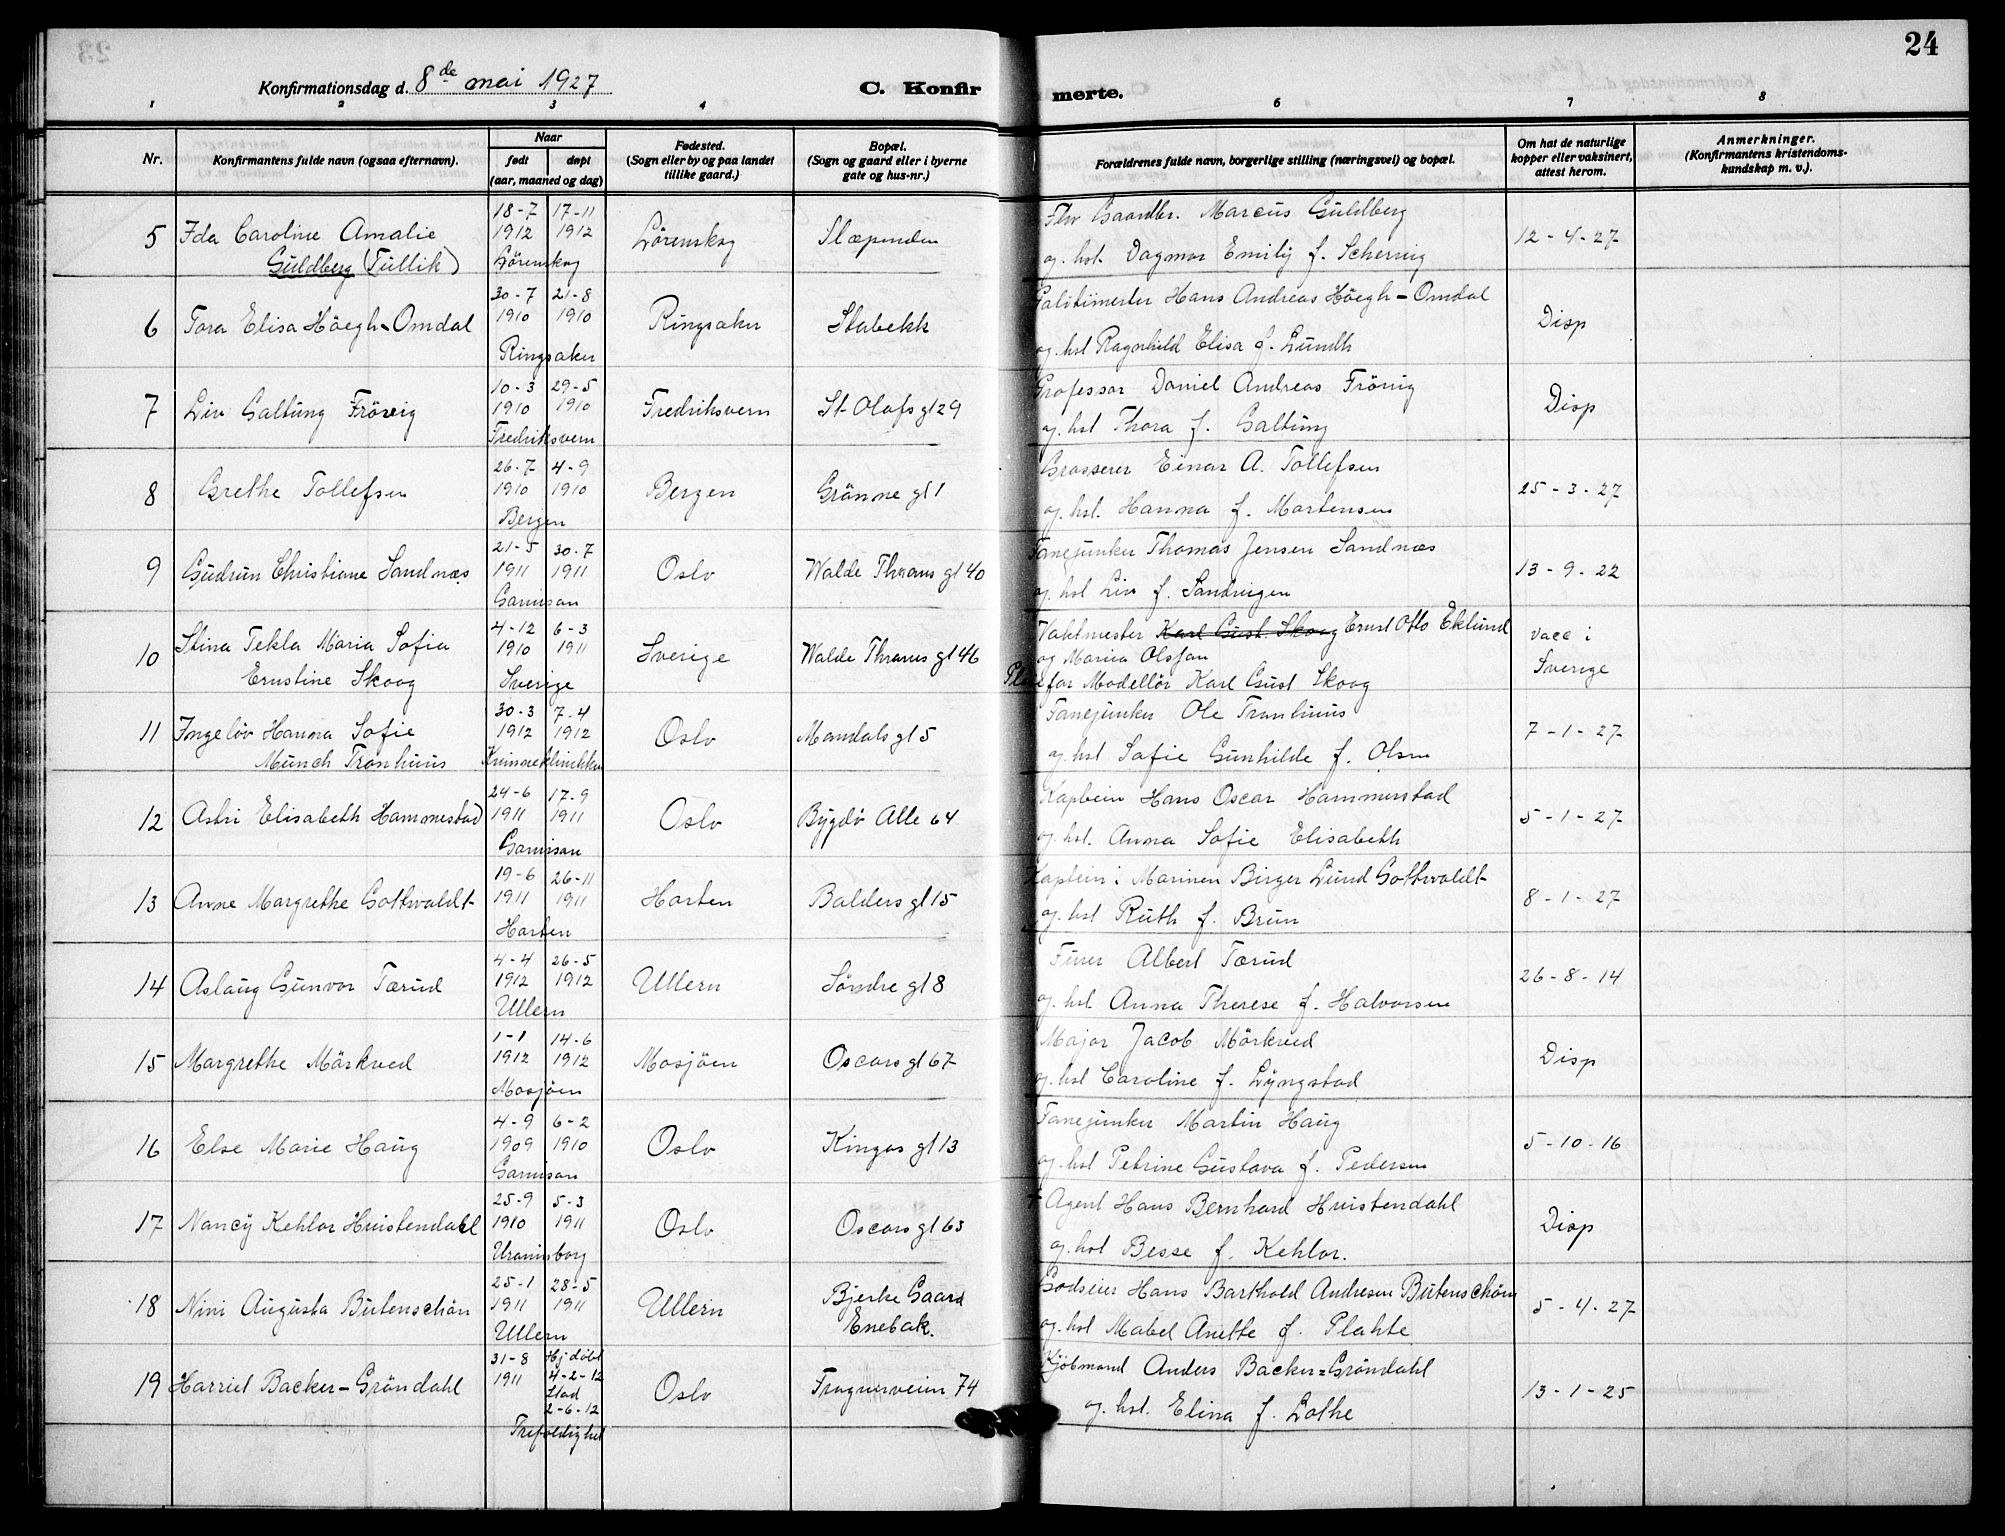 24
Konfirmationsdag d. 8de mai 1927
C. Konfirmerte.
1 2 3 4 5 6 7 8
Nr.
Konfirmantens fulde navn (ogsaa efternavn).
Naar
født
døpt
(aar, maaned og dag)
Fødested.
(Sogn eller by og paa landet
tillike gaard.)
Bopæl.
(Sogn og gaard eller i byerne
gate og hus-nr.)
Forældrenes fulde navn, borgerlige stilling (næringsvei) og bopæl.
Om hat de naturlige
kopper eller vaksinert,
attest herom.
Anmerkninger.
(Konfirmantens kristendoms-
kundskap m. v.).
5 Ida Caroline Amalie
Guldberg (Tullik)
18-7 1912
17-11 1912
Lörenskog
Lörenskog
Slæpenden
Gaardbr. Marcus Guldberg
og. hst. Dagmar Emily f. Schernig
12-4-27
6 Tora Elisa Höegh-Omdal
30-7 1910
21-8 1910
Ringsaker
Ringsaker
Stabekk
Hans Andreas Höegh-Omdal
og. hst Ragnhild Elisa f. Lundh
Disp
7 Liv Galtung Frövig
10-3 1910
29-5 1910
Fredriksvern
Fredriksvern
St. Olafs gt 29
Professor Daniel Andreas Frövig
og. hst Thora f. Galtung
Disp
8 Grethe Tollefsen
26-7 1910
4-9 1910
Bergen
Bergen
Grönne gt 1
Grosserer Einar A. Tollefsen
og. hst. Hanna f. Martensen
25-3-27
9 Gudrun Christiane Sandnæs
21-5 1911
30-7 1911
Garnison
Oslo
Walde Thranes gt 40
Fanejunker Thomas Jensen Sandnæs
og hst Liv f. Sandvigen
13-9-22
10 Stina Tekla Maria Sofia
Ernstine Skoog
4-12 1910
6-3 1911
Sverige
Sverige
Walde Thranes gt 46
Vaktmester Karl Gust. Skoog Ernst Otto Eklund
og Maria Olsson
Pleiefar Modellör Karl Gust Skoog
vacc i
Sverige
11 Ingelöv Hanna Sofie
Munch Tronhuus
30-3 1912
7-4 1912
Kvinneklinikken
Oslo
Mandals gt 5
Fanejunker Ole Tronhuus
og hst Sofie Gunhilde f. Olsen
7-1-27
12 Astri Elisabeth Hammerstad
24-6 1911
17-9 1911
Garnison
Oslo
Bygdö Alle 64
Kaptein Hans Oscar Hammerstad
og. hst. Anna Sofie Elisabeth
5-1-27
13 Anne Margrethe Gottwaldt
19-6 1911
26-11 1911
Horten
Horten
Balders gt 15
Kaptein i Marinen Birger Lund Gottwaldt
og. hst Ruth f. Brun
8-1-27
14 Aslaug Gunvor Tærud
4-4 1912
26-5 1912
Ullern
Ullern
Söndre gt 8
Furer Albert Tærud
og. hst Anna Therese f. Halvorsen
26-8-14
15 Margrethe Mörkved
1-1 1912
14-6 1912
Mosjöen
Mosjöen
Oscars gt 67
Major Jacob Mörkved
og. hst Caroline f. Lyngstad
Disp
16 Else Marie Haug
4-9 1909
6-2 1910
Garnison
Oslo
Kingos gt 13
Fanejunker Martin Haug
og. hst Petrine Gustava f. Pedersen
5-10-16
17 Nancy Kehlor Huistendahl
25-9 1910
5-3 1911
Uranienborg
Oslo
Oscars gt 63
Agent Hans Bernhard Huistendahl
og. hst Besse f. Kehlor.
Disp
18 Nini Augusta Butenschön
25-1 1911
28-5 1911
Ullern
Ullern
Bjerke Gaard
Enebak.
Godseier Hans Barthold Andresen Butenschön
og. hst Mabel Anette f. Plahte
5-4-27
19 Harriet Backer-Gröndahl
31-8 1911
Hj döbt
4-2-12
Stad
2-6-12
Trefoldighet
Oslo
Frognerveien 74
Kjöbmand Anders Backer=Gröndahl
og. hst. Elina f. Lothe
13-1-25